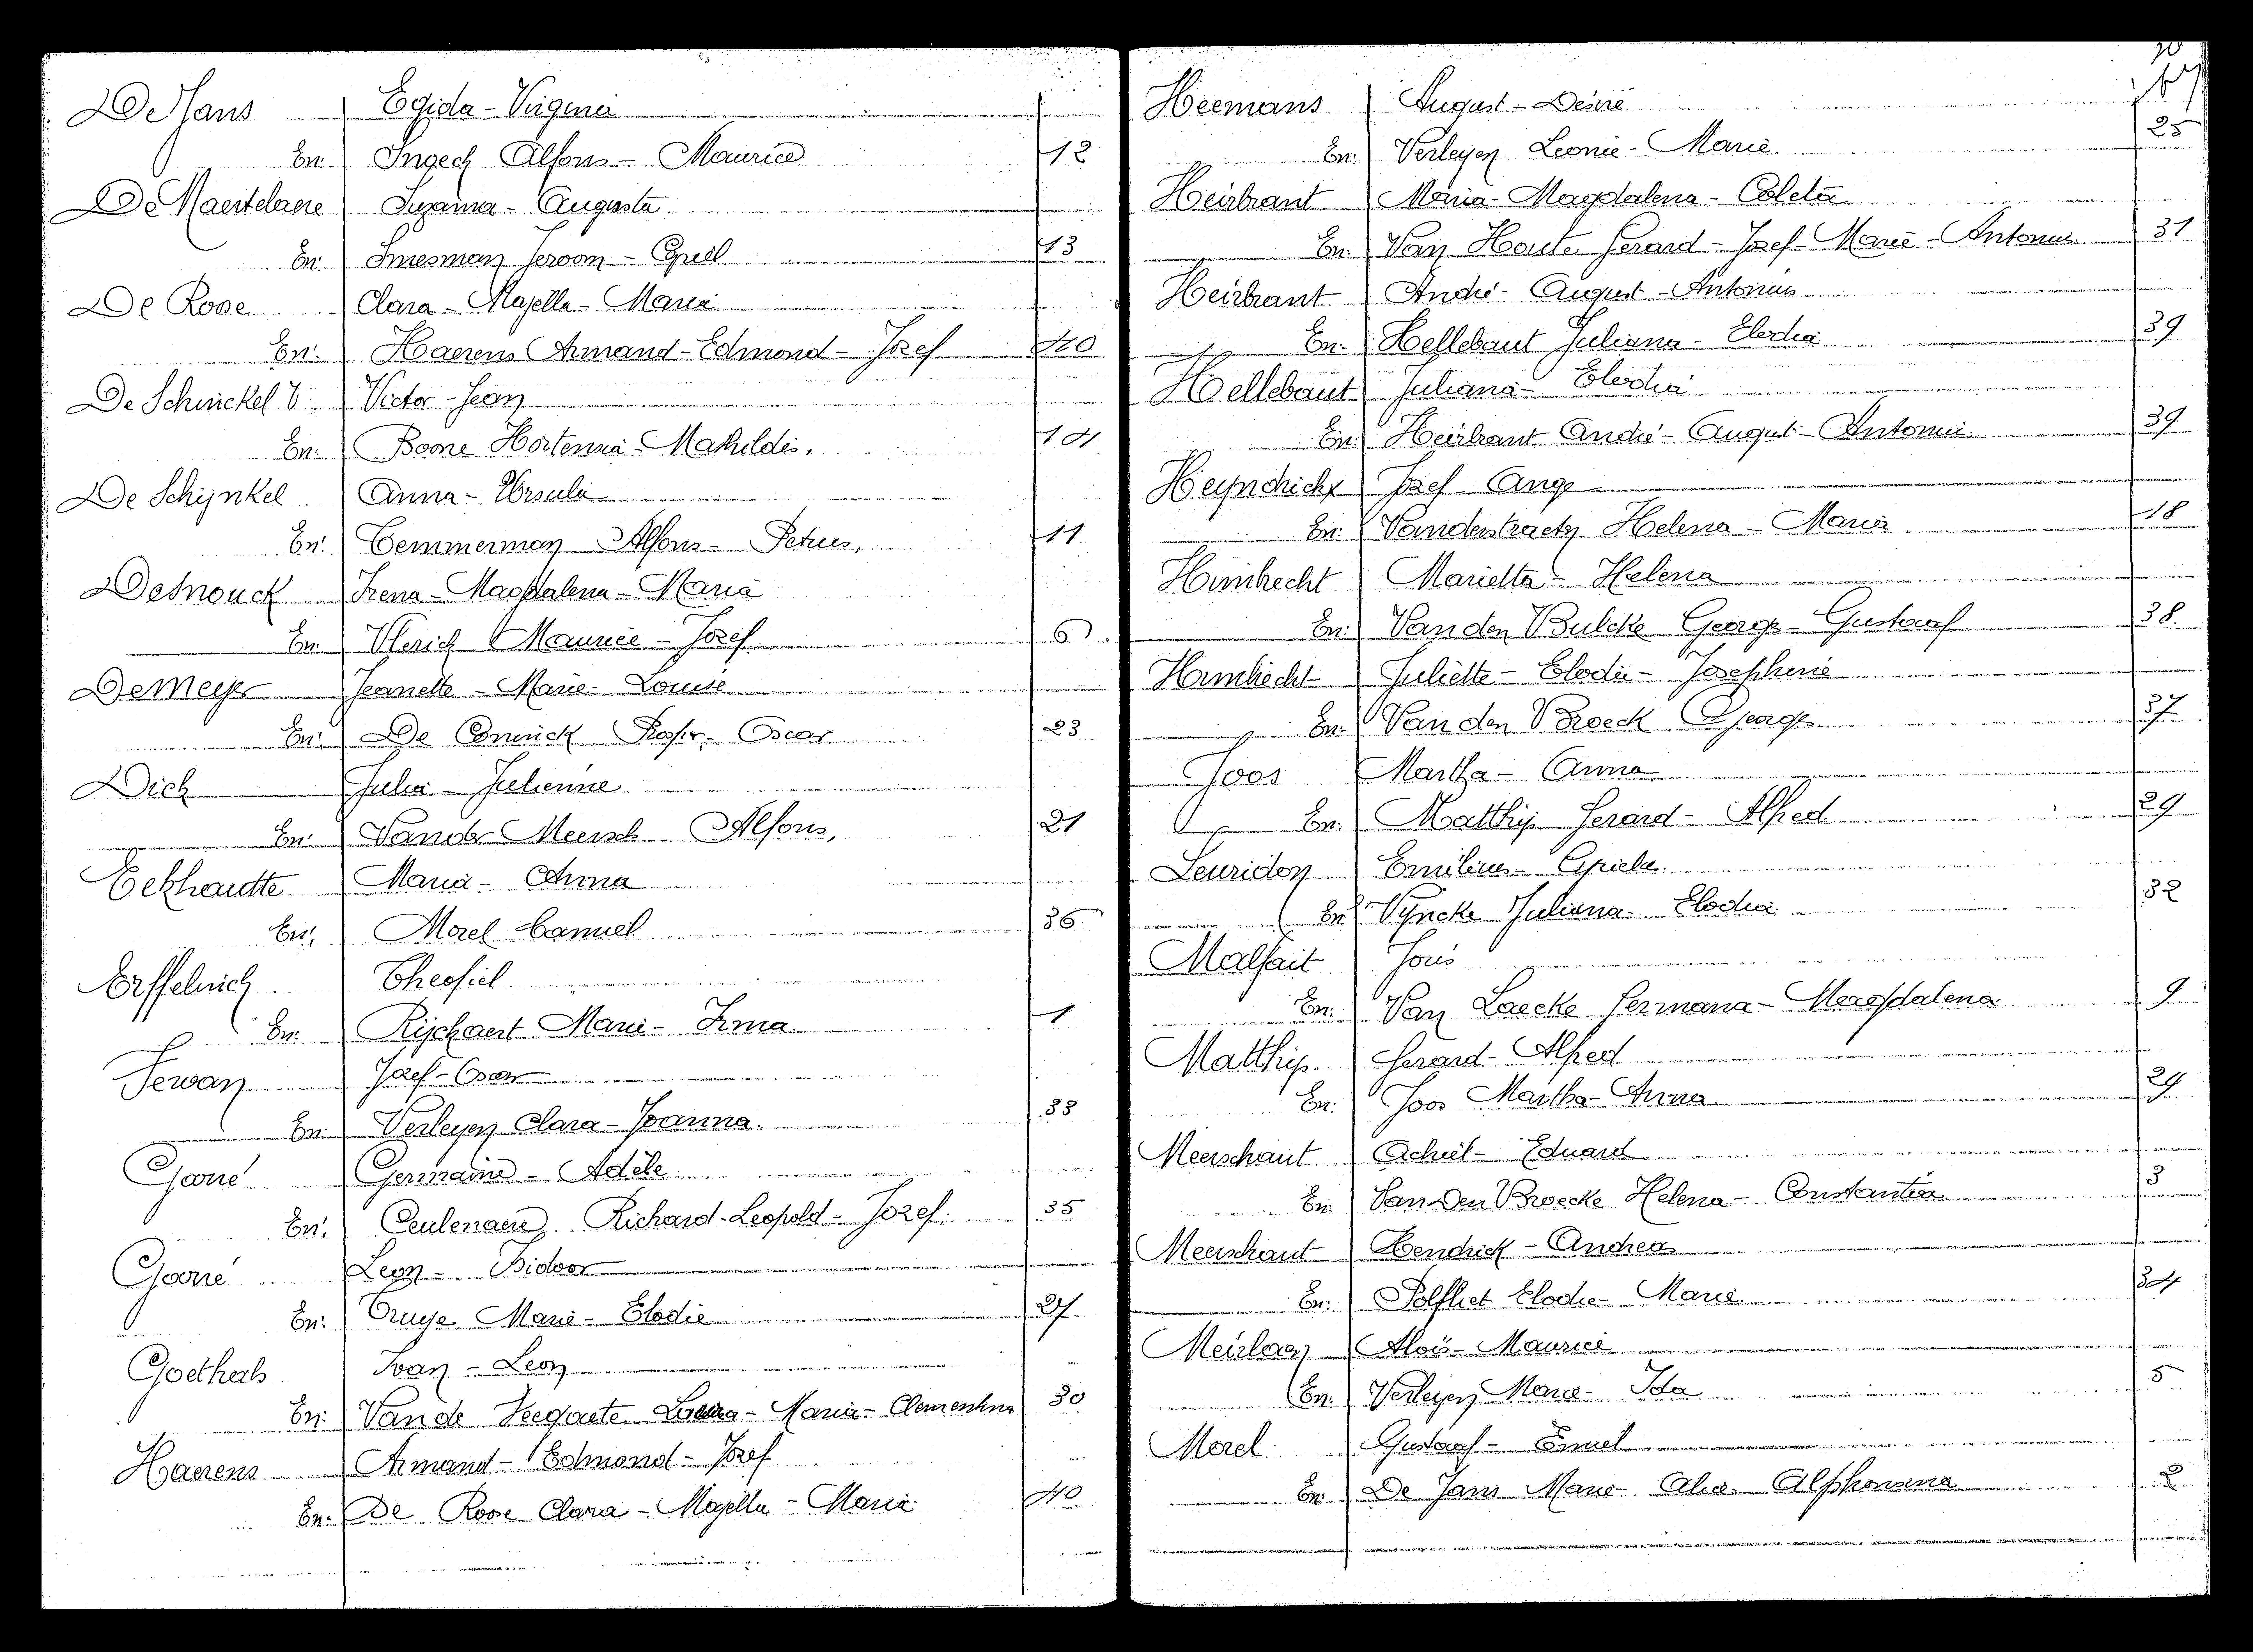 De Jans Egida - Virginia
En: Ingech Alfons - Maurice 12
De Maertelaere Suzanna - Augusta
En: Smesman Jeroom - Cyriel 13
De Roose Clara - Majella - Maria
En: Haerens Armand - Edmond - Jozef 40
De Schinckel V. Victor - Jean
En: Boone Hortensia - Mathildis. 14
De Schijnkel Anna - Ursula
En: Temmerman Alfons - Petrus, 11
Desnouck Irena - Magdalena - Maria
En: Vlerick Maurice - Jozef. 6
De Meyer Jeanette - Marie - Louise
En: De Coninck Oscar 23
Dick Julia - Julienne
En: Vander Meersch Alfons, 21
Eekhaudte Maria - Anna
En: Morel Camiel 36
Erffelinck Theofiel
En: Rijckaert Marie - Irma 1
Fevan Jozef - Oscar
En: Verleyen Clara - Joanna. 33
Goné Germaine - Adèle
En: Ceulenaere Richard - Leopold - Jozef. 35
Leon - Isidoor
En: Cruye Marie - Elodie 27
Goethals Ivan - Leon
En: Van de Veegaete Maria - Clementina 30
Haerens Armand - Edmond - Jozef
En: De Roose Clara - Majella - Maria 40
Heemans August - Desiré
En: Verleyen Leonie - Marie. 25
Heirbrant Maria - Magdalena - Coleta
En: Van Houte Gerard - Jozef - Marie - Antonius 31
Heirbrant André - August - Antonius
En: Hellebaut Juliana - Elodia 39
Hellebaut Juliana - Elodia
En: Heirbrant André - August - Antonius. 39
Heyndrickx Jozef - Ange
En: Vanderstraeten Helena - Maria 18
Hombrecht Marietta - Helena
En: Van den Bulcke George - Gustaaf 38
Hombrecht Juliette - Elodie - Josephine
En: Van den Broeck George 37
Joos Martha - Anna
En: Matthijs Gerard - Alfred 29
Leuridon Emilius - Cyriel
En: Vyncke Juliana - Elodia 32
Malfait Joris
En: Van Laecke Germana - Magdalena 9
Matthijs Gerard - Alfred
En: Joos Martha - Anna 29
Meerschaut Achiel - Eduard
En: Van Den Broecke Helena - Constantia 3
Meerschaut Hendrick - Andreas
En: Polfliet Elodie - Marie 34
Meirlaen Aloïs - Maurice
En: Verleyen Maria - Ida 5
Morel Gustaaf - Emiel
En: De Jans Marie - Alice - Alphonsina 2